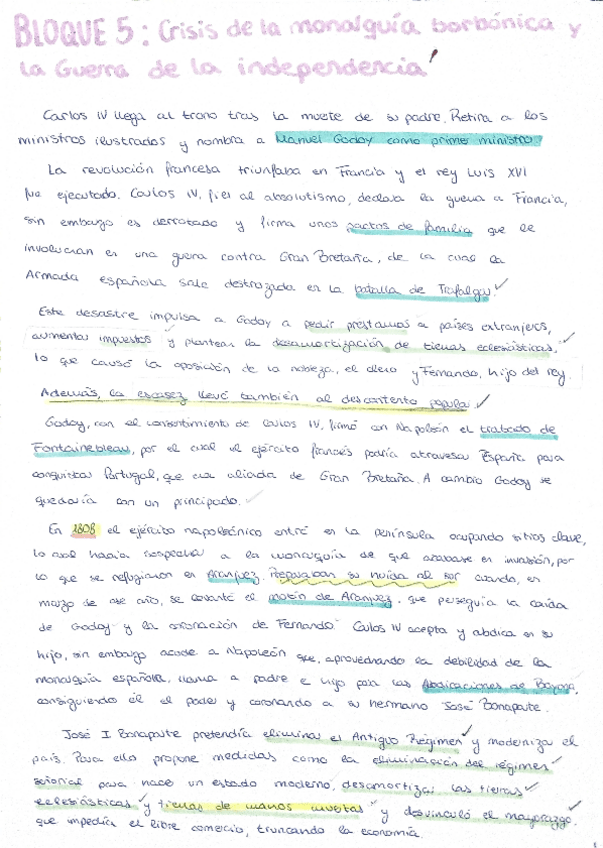 BLOQUE 5: Crisis de la monalguía borbónica y
la Guerra de la independencia
Carlos IV llega al trono tras la muete de su padre. Retira a los
ministros ilustrados y nombra a Manuel Godoy como primer ministro.
La revolución francesa triunfaba en Francia y el rey Luis XVI
fue ejecutado. Carlos IV, fiel al absolutismo, declara la guerra a Francia,
sin embargo es derrotado y firma unos pactos de familia que le
involucran en una guerra contra Gran Bretaña, de la cual la
Armada española sale destrozada en la batalla de Trafalgar.
Este desastre impulsa a Godoy a pedir prestamos a países extranjeros,
aumentar impuestos y plantear la desamortización de tierras eclesiásticas,
lo que causó la oposición de la nobleza, el clero y Fernando, hijo del rey.
Además, la escasez llevó también al descontento popular.
Godoy, con el consentimiento de Carlos IV, firmó con Napoleón el tratado de
Fontainebleau, por el cual el ejército francés podría atravesar España para
conquistar Portugal, que era aliada de Gran Bretaña. A cambio Godoy se
quedaría con un principado.
En 1808 el ejército napoleónico entró en la península ocupando sitios clave,
lo cual hacía sospechar a la monarquía de que acabase en invasión, por
lo que se refugiaron en Aranjuez. Preparaban su huida al sur cuando, en
marzo de ese año, se levantó el motín de Aranjuez, que perseguía la caída
de Godoy y la coronación de Fernando. Carlos IV acepta y abdica en su
hijo, sin embargo acude a Napoleón que, aprovechando la debilidad de la
monarquía española, llama a padre e hijo para las Abdicaciones de Bayona,
consiguiendo él el poder y coronando a su hermano José Bonaparte.
José I Bonaparte pretendía eliminar el Antiguo Régimen y modernizar el
país. Para ello propone medidas como la eliminación del régimen
señorial para hacer un estado moderno, desamortizar las tierras
eclesiásticas y tierras de manos muertas y desvinculó el mayorazgo
que impedía el libre comercio, truncando la economía.